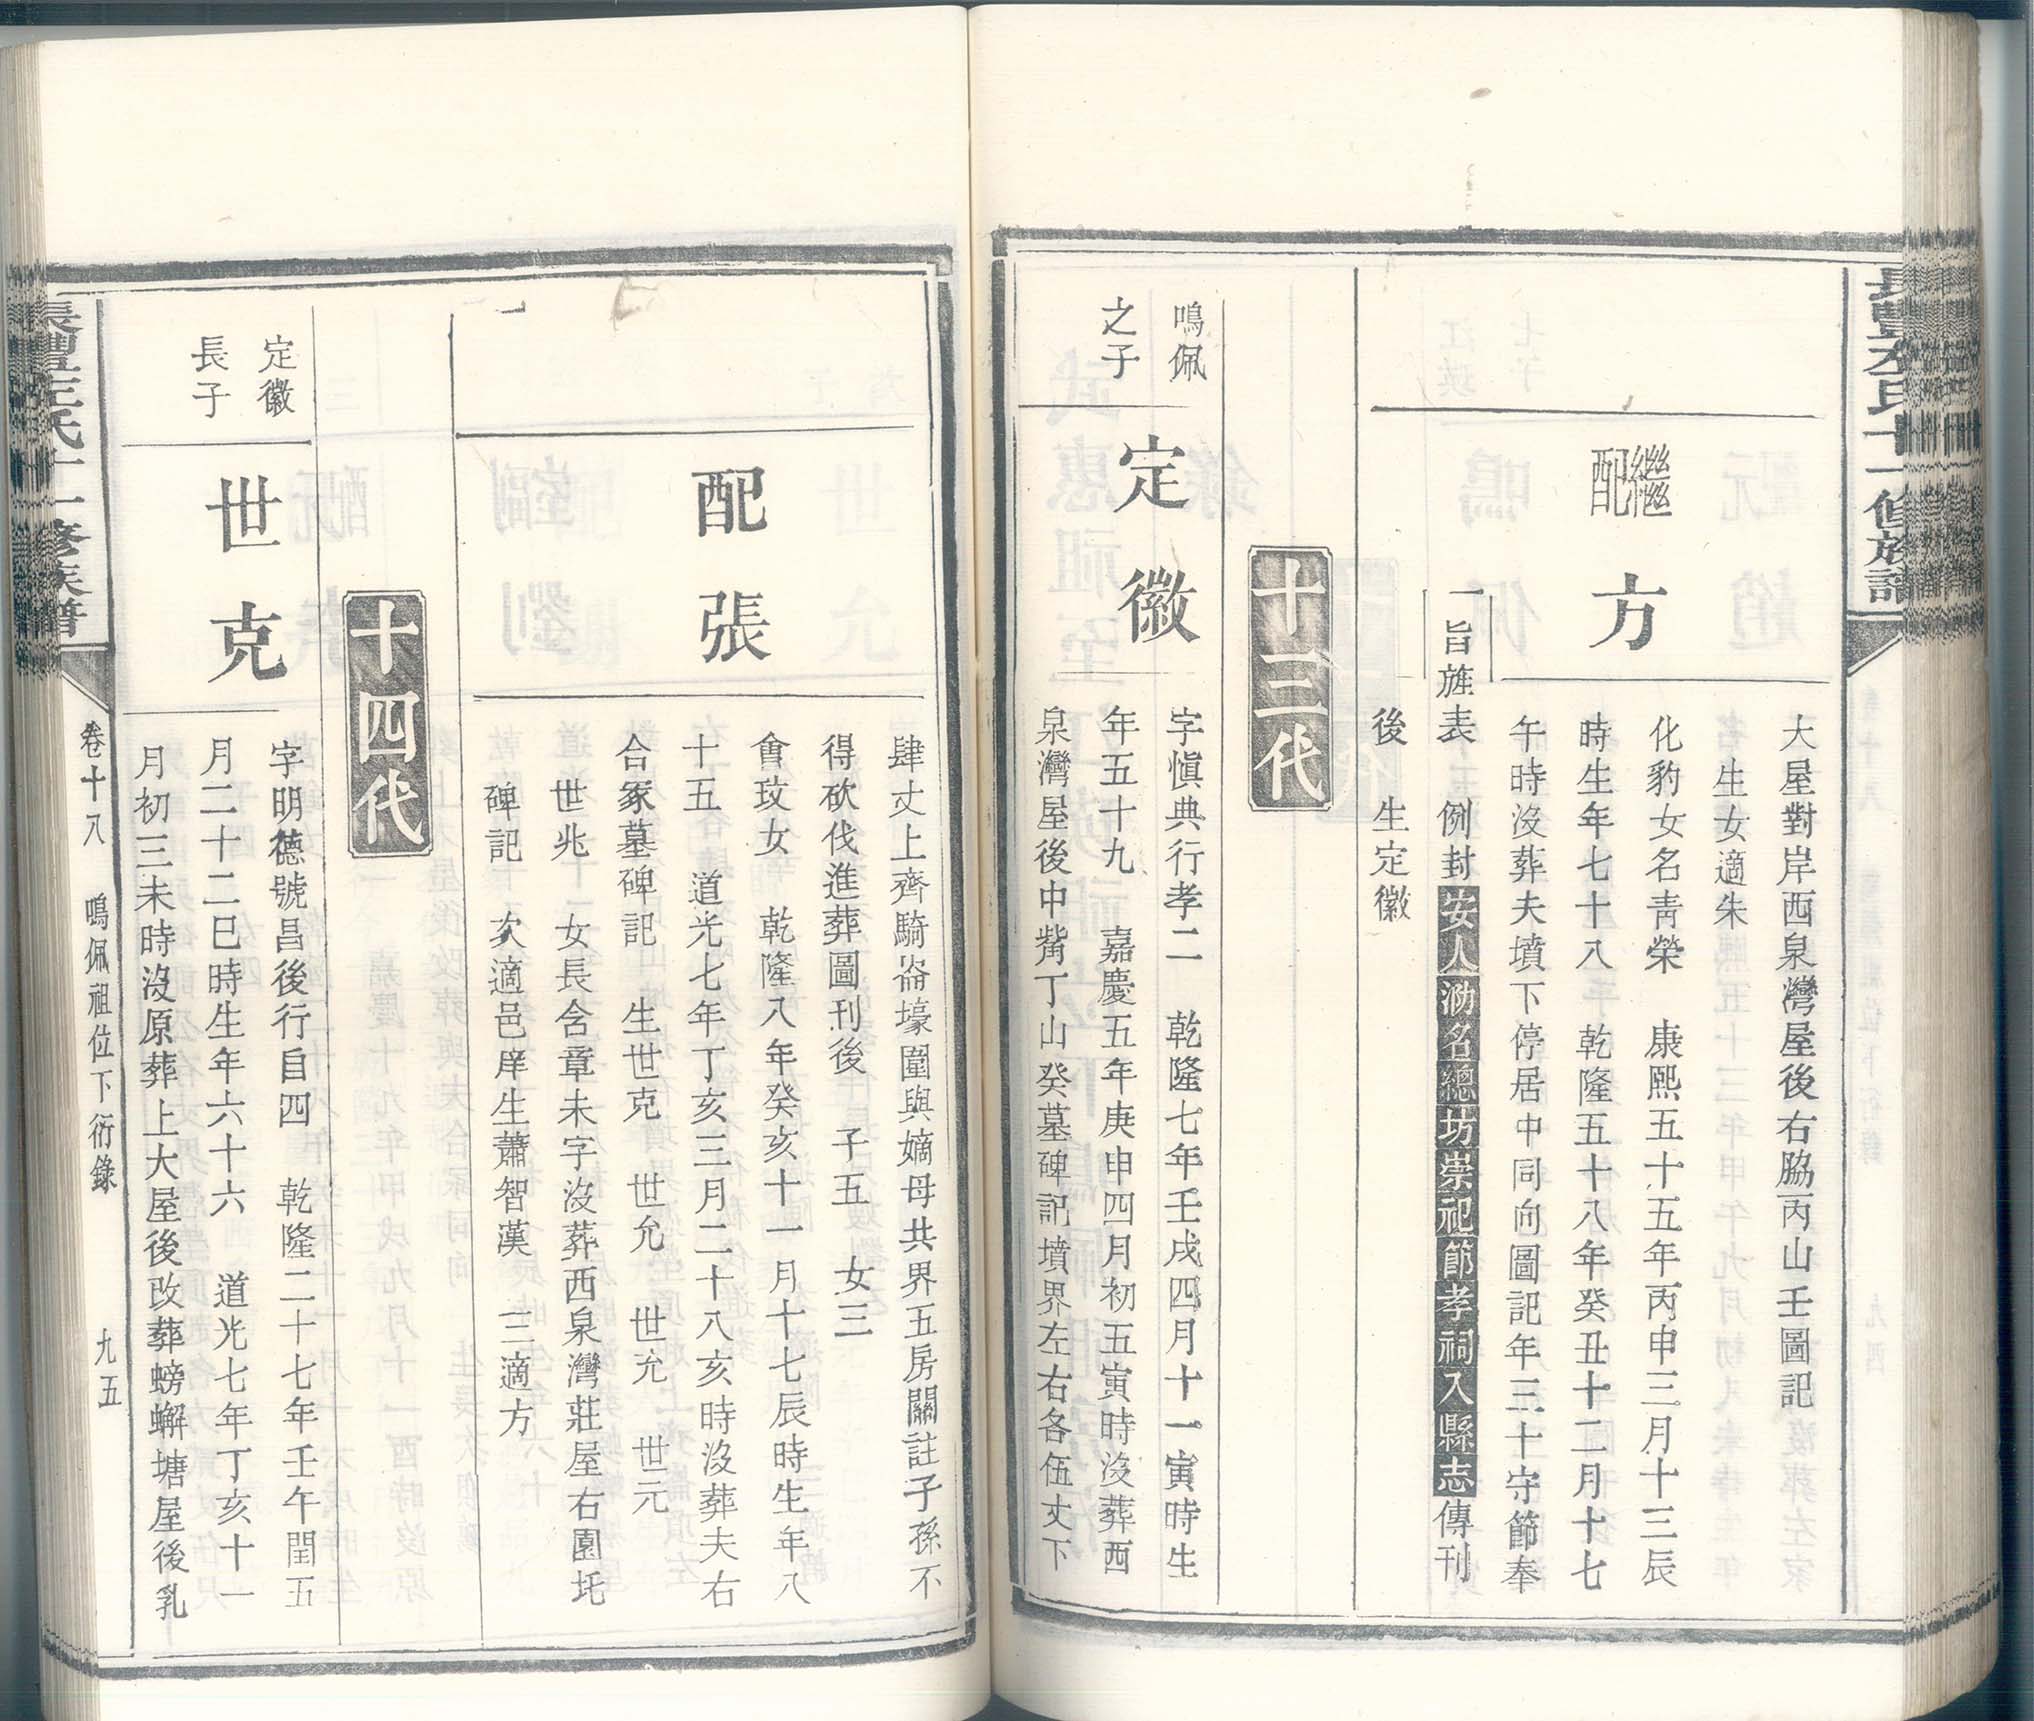 大屋對岸西泉灣屋後右脇丙山壬圖記
生女適朱
繼配
方
化豹女名青榮　康熙五十五年丙申三月十三辰
時生年七十八　乾隆五十八年癸丑十二月十七
午時沒葬夫墳下停居中同向圖記年三十守節奉
旨旌表　例封安人泐名總坊崇祀節孝祠入縣志傳刊
後　生定徽
十三代
鳴佩
之子
定徽
字慎典行孝二　乾隆七年壬戌四月十一寅時生
年五十九　嘉慶五年庚申四月初五寅時沒葬西
泉灣屋後中嘴丁山癸墓碑記墳界左右各伍丈下
肆丈上齊騎崙壕圍與嫡母共界五房關註子孫不
得砍伐進葬圖刊後　子五　女三
配張
會玟女　乾隆八年癸亥十一月十七辰時生年八
十五　道光七年丁亥三月二十八亥時沒葬夫右
合冢墓碑記　生世克　世允　世充　世元
世兆　女長含章未字沒葬西泉灣莊屋右園圫
碑記　次適邑庠生蕭智漢　三適方
十四代
定徽
長子
世克
字明德號昌後行自四　乾隆二十七年壬午閏五
月二十二巳時生年六十六　道光七年丁亥十一
月初三未時沒原葬上大屋後改葬螃蠏塘屋後乳
左氏十一修族譜
卷十八　鳴佩祖位下衍錄
九五